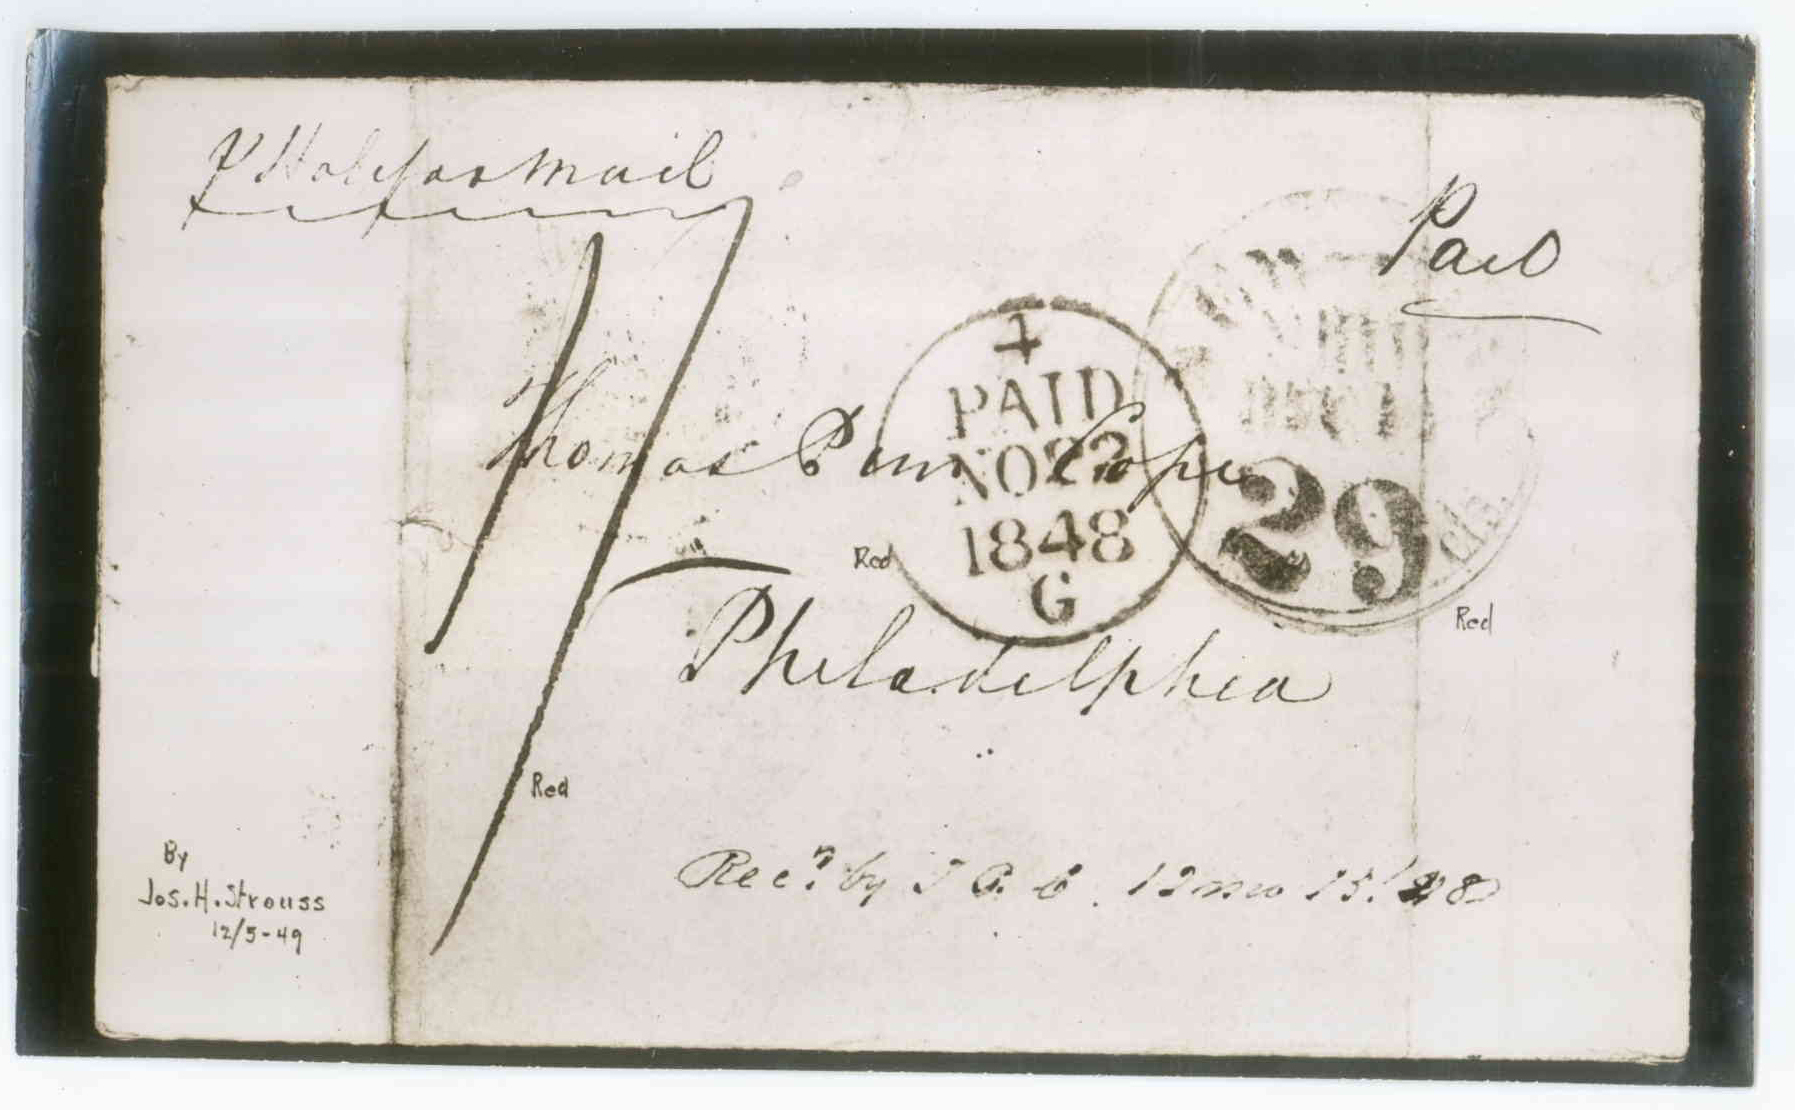 P Halifax Mail
Paid
+
PAID
NO 22
1848
G
DEC
29
cts.
Thomas Pim Cope
Philadelphia
Red
Red
Red
Rec.d by T P. C. 12 mo 15. 48
By
Jos. H. Strouss
12/5-49